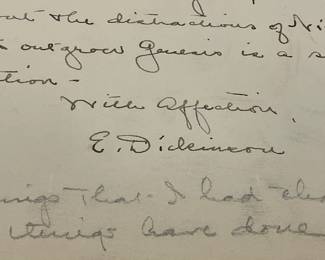 out the distractions of
outgrow Genesis is a s
tion -
With affection,
E. Dickinson
ings that I had
things have done